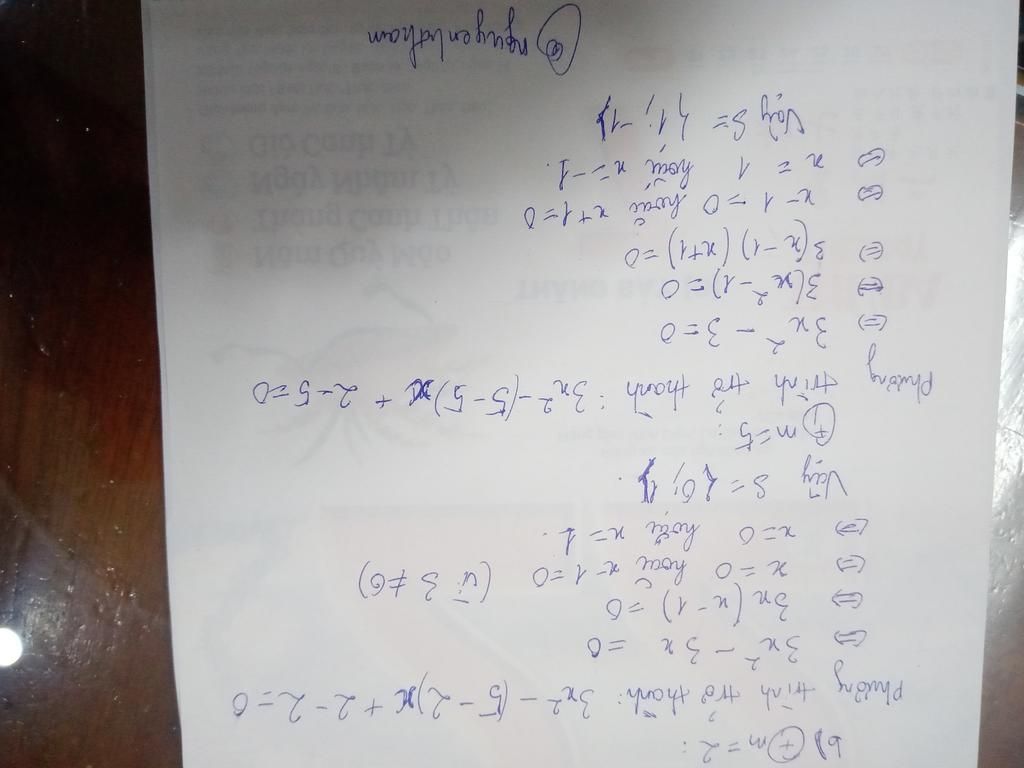 b) + m=2:
Phương trình trở thành: 3x² - (5-2)x + 2-2=0
⇔ 3x² - 3x = 0
⇔ 3x(x-1) = 0
⇔ x=0 hoặc x-1=0 (vì 3≠0)
⇔ x=0 hoặc x=1.
Vậy S={0;1}.
+ m=5:
Phương trình trở thành: 3x² - (5-5)x + 2-5=0
⇔ 3x² - 3=0
⇔ 3(x²-1)=0
⇔ 3(x-1)(x+1)=0
⇔ x-1=0 hoặc x+1=0
⇔ x = 1 hoặc x=-1.
Vậy S={1;-1}
Năm Quý Mão
Tháng Canh Thân
Ngày Nhâm Tý
Giờ Canh Tý